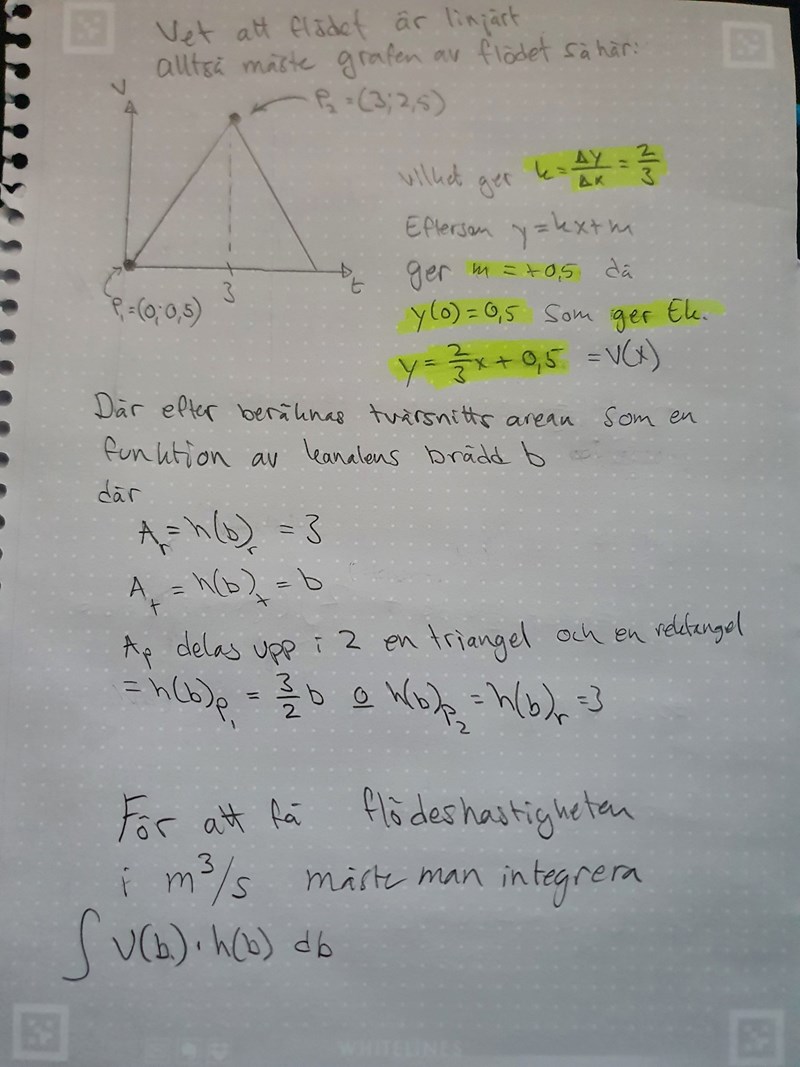 Vet att flödet är linjärt
alltså måste grafen av flödet såhär:
V
P₂ = (3;2,5)
3
t
P₁=(0;0,5)
vilket ger k = Δy/Δx = 2/3
Eftersom y = kx+m
ger m = +0,5 då
y(0) = 0,5 Som ger Ek.
y = 2/3 x + 0,5 = V(x)
Där efter beräknas tvärsnitts arean som en
funktion av kanalens brädd b
där
Aᵣ = h(b)ᵣ = 3
Aₜ = h(b)ₜ = b
Aₚ delas upp i 2 en triangel och en rektangel
= h(b)ₚ₁ = 3/2 b o h(b)ₚ₂ = h(b)ᵣ = 3
För att få flödeshastigheten
i m³/s måste man integrera
∫ V(b) · h(b) db
WHITELINES